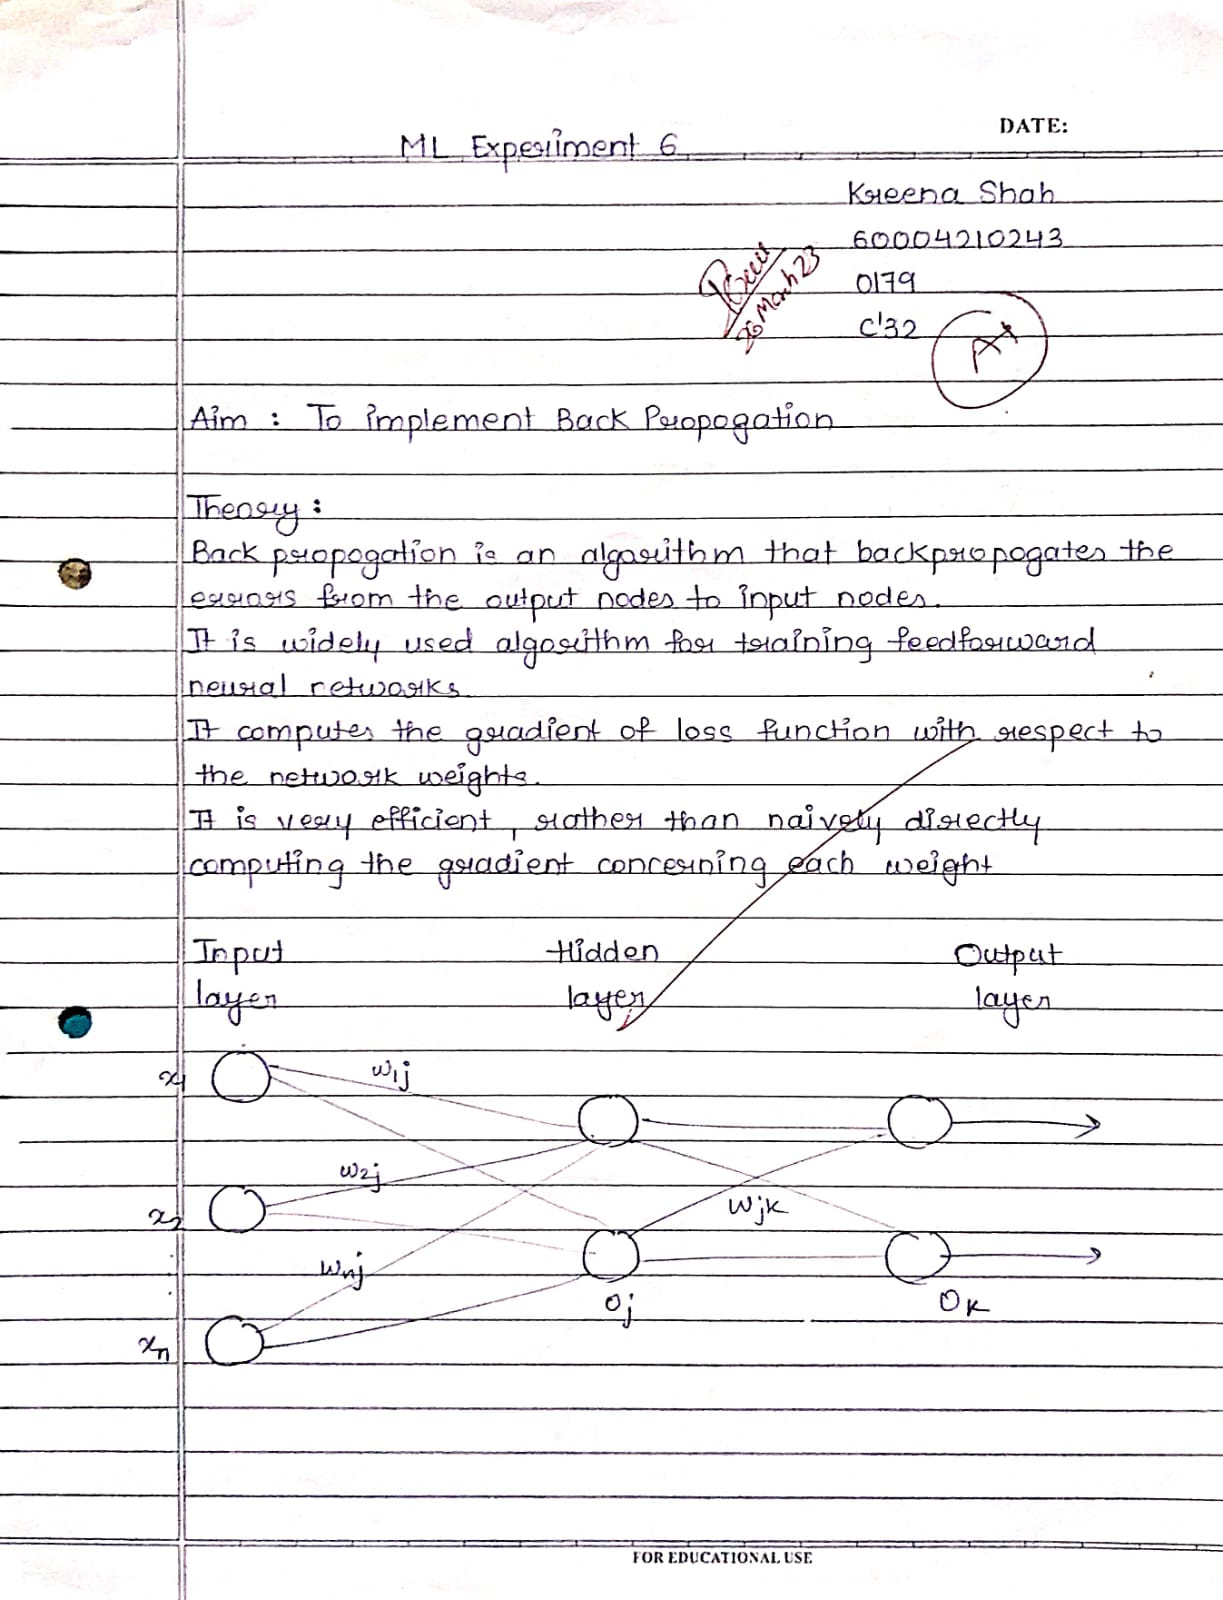 DATE:
ML Experiment 6
Kreena Shah
60004210243
0179
26 March 23
C'32
A+
Aim : To implement Back Propogation
Theory :
Back propogation is an algorithm that backpropogates the
errors from the output nodes to input nodes.
It is widely used algorithm for training feedforward
neural networks.
It computes the gradient of loss function with respect to
the network weights.
It is very efficient, rather than naively directly
computing the gradient concerning each weight
Input Hidden Output
layer layer layer
x1 w1j
w2j
x2 wjk
wnj
Oj Ok
xn
FOR EDUCATIONAL USE